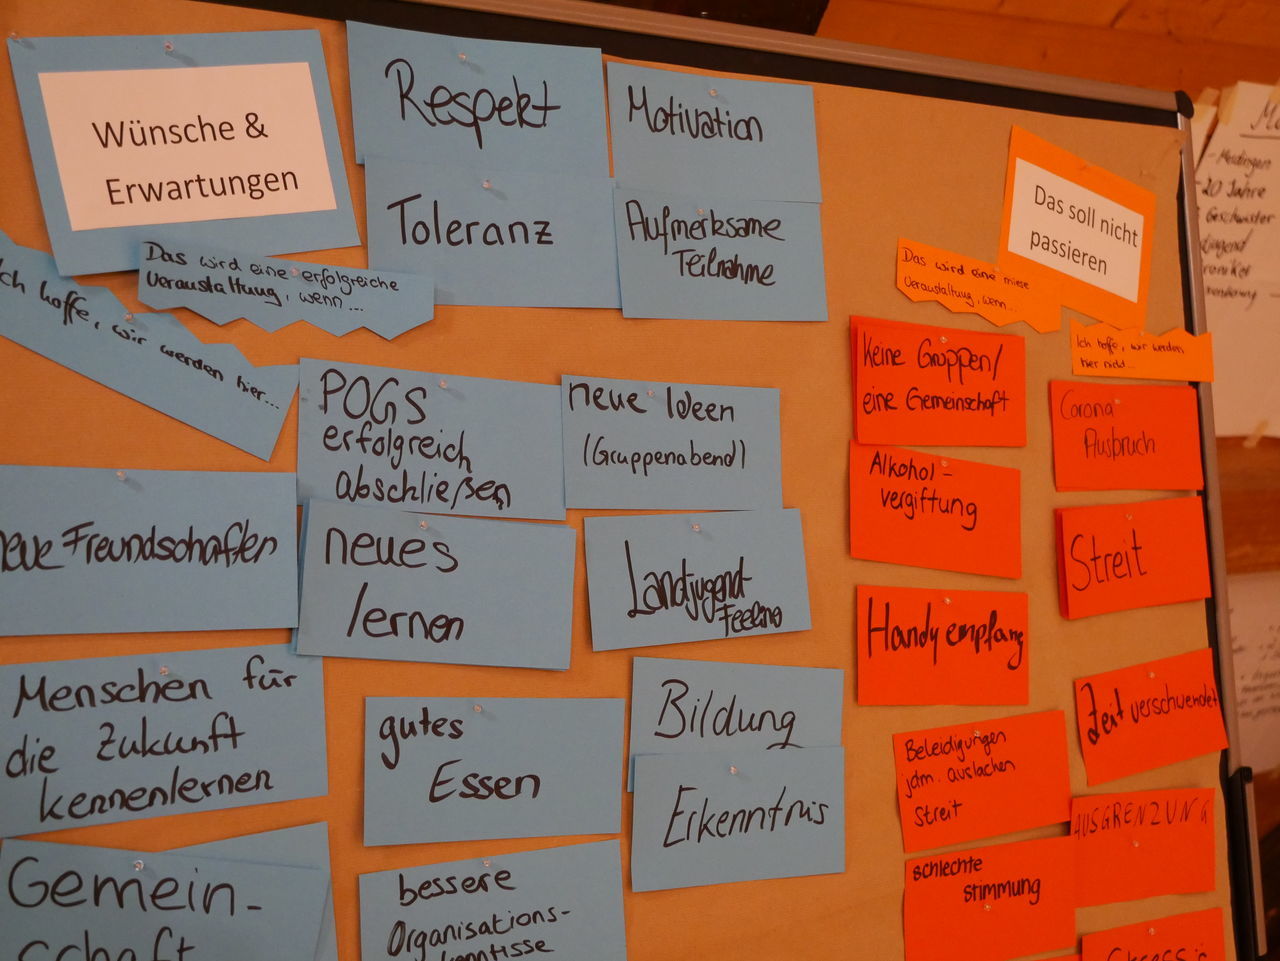 Wünsche &
Erwartungen
Respekt
Motivation
Toleranz
Aufmerksame
Teilnahme
Das wird eine erfolgreiche
Veranstaltung, wenn...
Ich hoffe, wir werden hier...
POGS
erfolgreich
abschließen
neue Ideen
(Gruppenabend)
neue Freundschaften
neues
lernen
Landjugend-
Feeling
Menschen für
die Zukunft
kennenlernen
gutes
Essen
Bildung
Erkenntnis
Gemein-
schaft
bessere
Organisations-
Das soll nicht
passieren
Das wird eine miese
Veranstaltung, wenn...
Ich hoffe, wir werden
hier nicht...
Keine Gruppen/
eine Gemeinschaft
Corona
Ausbruch
Alkohol-
vergiftung
Streit
Handyempfang
Zeit verschwendet
Beleidigungen
jdm. auslachen
Streit
AUSGRENZUNG
schlechte
stimmung
20 Jahre